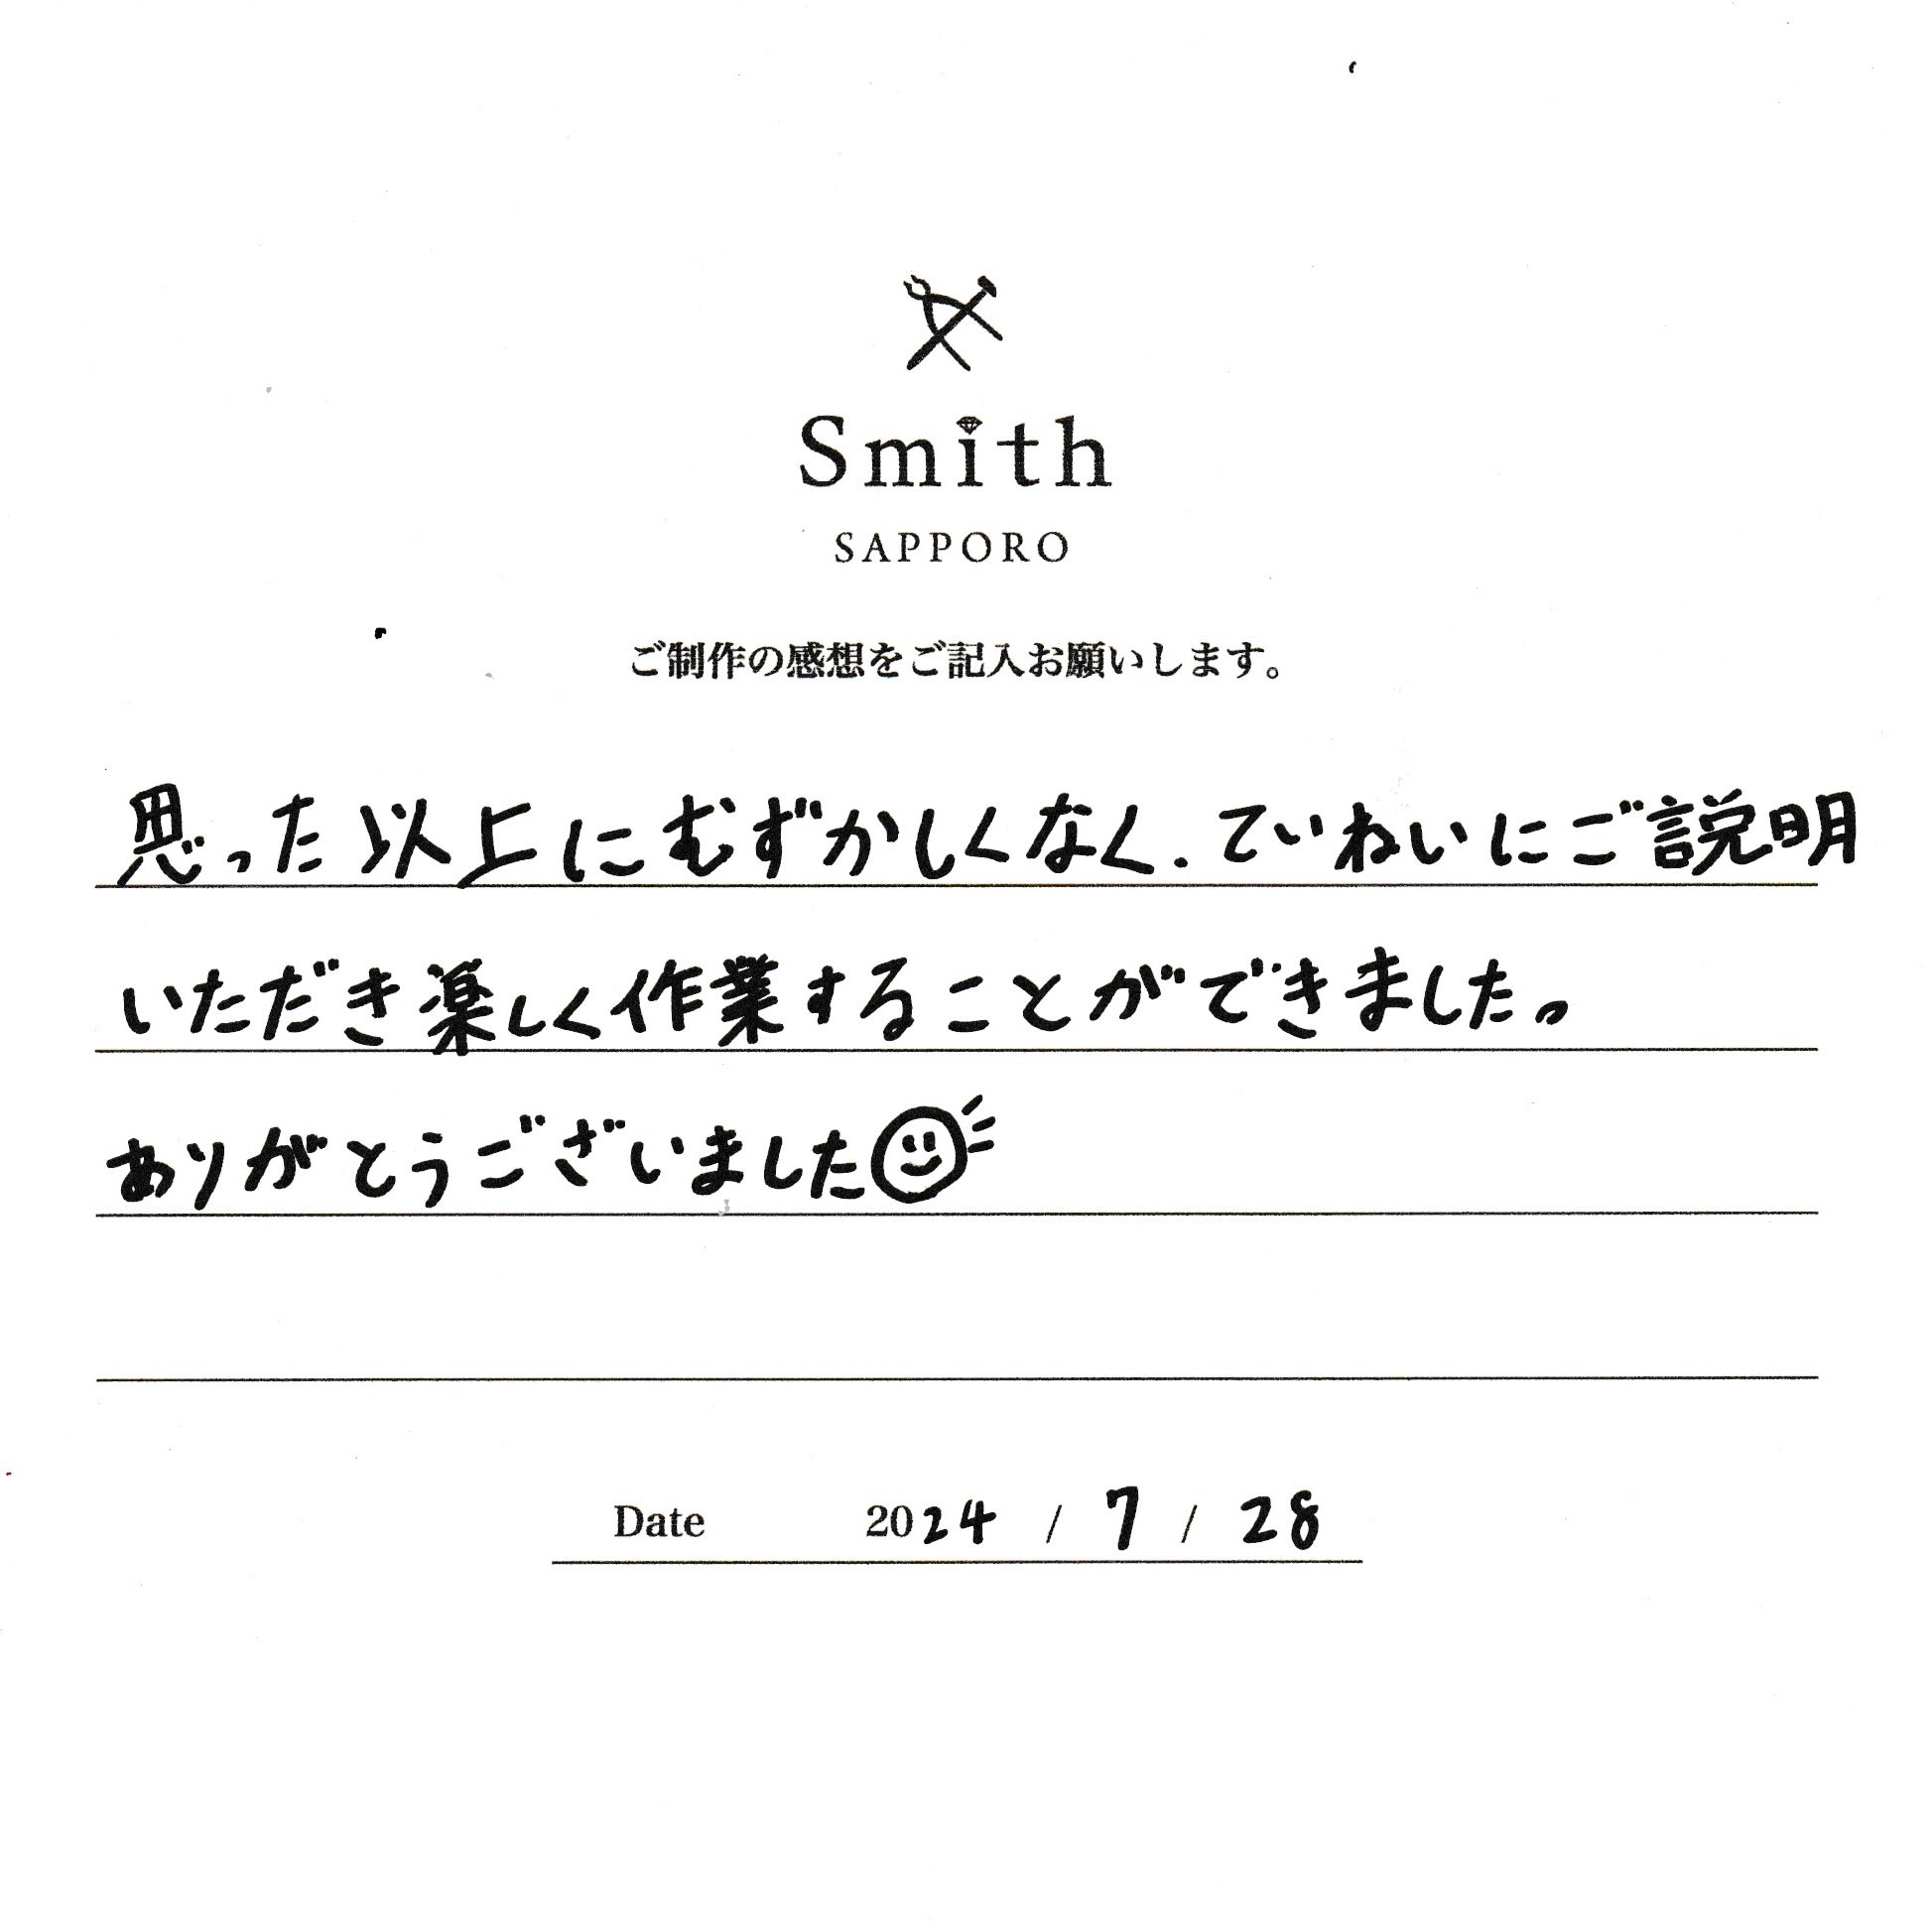 Smith
SAPPORO
ご制作の感想をご記入お願いします。
思った以上にむずかしくなく、ていねいにご説明
いただき楽しく作業することができました。
ありがとうございました
Date 2024 / 7 / 28